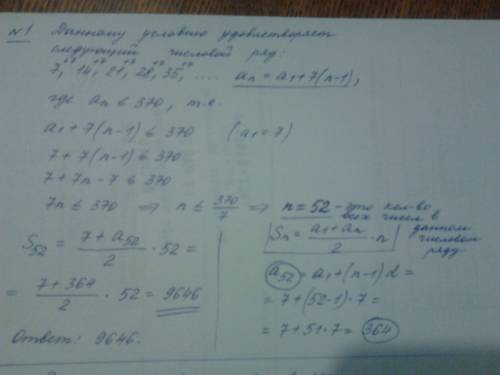 №1 Данному условию удовлетворяет
следующий числовой ряд:
+7 +7 +7 +7
7, 14, 21, 28, 35, .... an = a1+7(n-1),
где an ≤ 370, т.е.
a1+7(n-1) ≤ 370 (a1=7)
7+7(n-1) ≤ 370
7+7n-7 ≤ 370
7n ≤ 370 ⇒ n ≤ 370/7 ⇒ n=52 - это кол-во
всех чисел в
данном
числовом
ряду
S52 = (7+a52)/2 · 52 =
= (7+364)/2 · 52 = 9646
Ответ: 9646.
Sn = (a1+an)/2 · n
a52 = a1+(n-1)d =
= 7+(52-1)·7 =
= 7+51·7 = 364